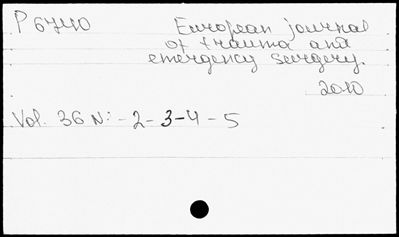 P 6740 European journal
of trauma and
emergency surgery.
2010
Vol. 36 N: - 2 - 3 - 4 - 5